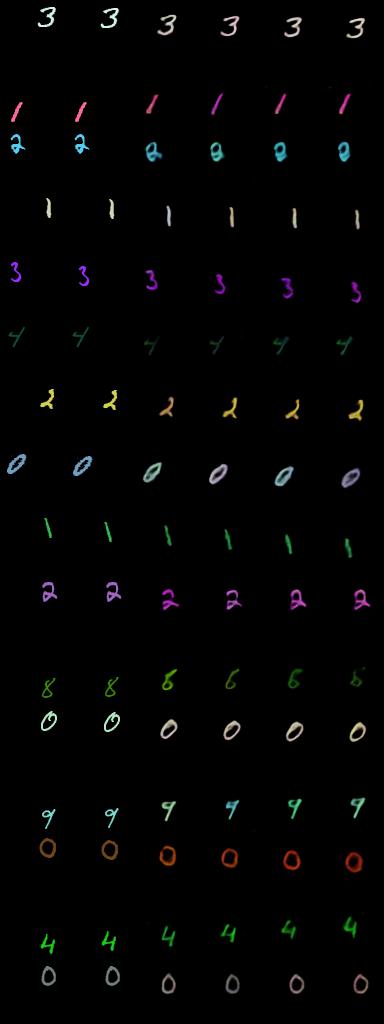 3 3 3 3 3 3
1 1 1 1 1 1
2 2 2 2 2 2
1 1 1 1 1 1
3 3 3 3 3 3
4 4 4 4 4 4
2 2 2 2 2 2
0 0 0 0 0 0
1 1 1 1 1 1
2 2 2 2 2 2
8 8 8
0 0 0 0 0 0
9 9 9 9 9 9
0 0 0 0 0 0
4 4 4 4 4 4
0 0 0 0 0 0